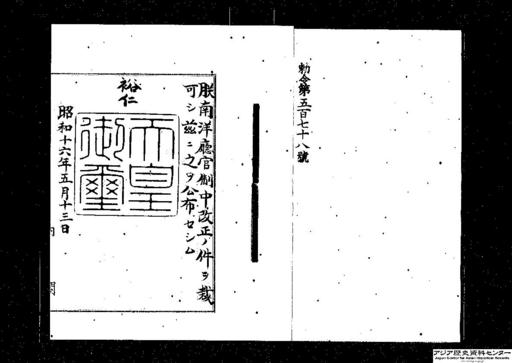 勅令第五百七十八號
朕南洋廳官制中改正ノ件ヲ裁
可シ茲ニ之ヲ公布セシム
裕仁
天皇
御璽
昭和十六年五月十三日
内閣
アジア歴史資料センター
Japan Center for Asian Historical Records